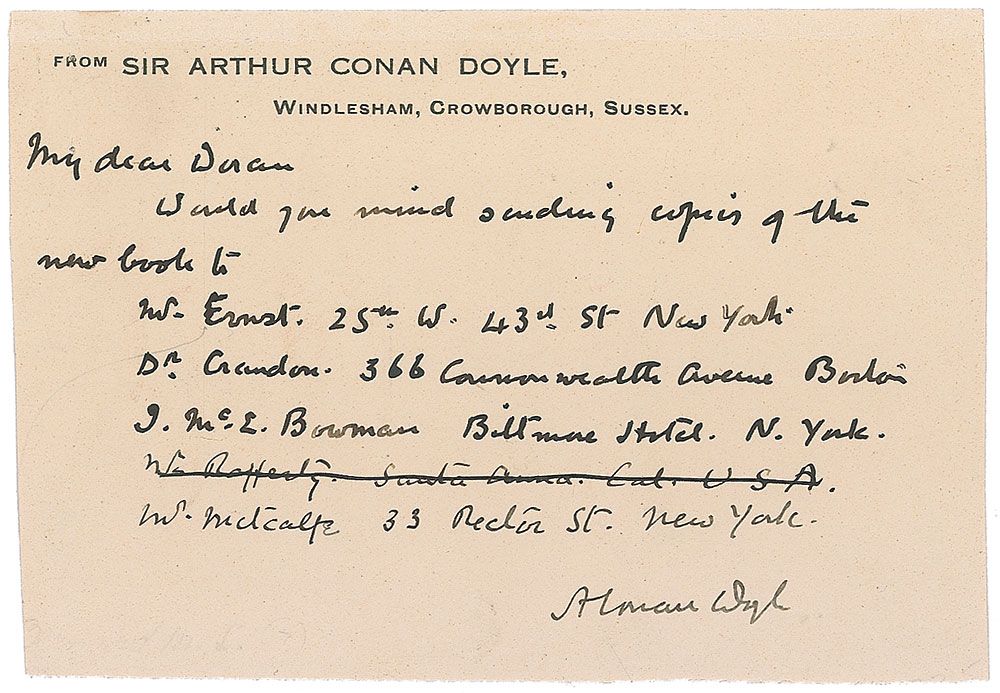 FROM SIR ARTHUR CONAN DOYLE,
WINDLESHAM, CROWBOROUGH, SUSSEX.
My dear Doran
Would you mind sending copies of the
new book to
Mr. Ernst. 25th W. 43rd St New York.
Dr. Crandon. 366 Commonwealth Avenue Boston
J. Mc. E. Bowman Biltmore Hotel. N. York.
Mr Rafferty. Santa Anna. Cal. U S A.
Mr. Metcalfe 33 Rector St. New York.
A Conan Doyle